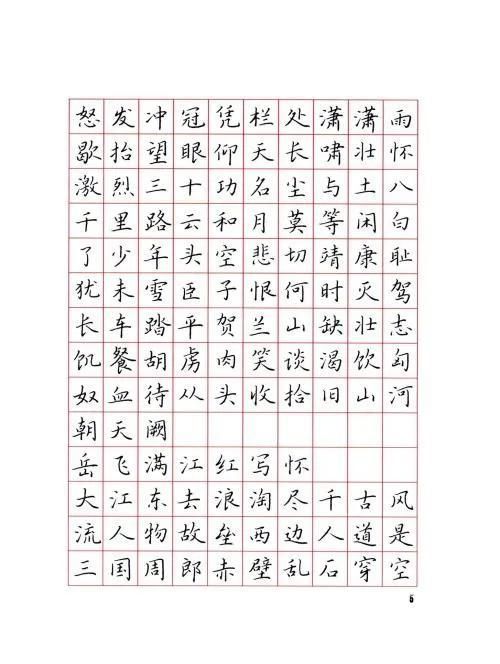 怒发冲冠凭栏处潇潇雨
歇抬望眼仰天长啸壮怀
激烈三十功名尘与土八
千里路云和月莫等闲白
了少年头空悲切靖康耻
犹未雪臣子恨何时灭驾
长车踏平贺兰山缺壮志
饥餐胡虏肉笑谈渴饮匈
奴血待从头收拾旧山河
朝天阙
岳飞满江红写怀
大江东去浪淘尽千古风
流人物故垒西边人道是
三国周郎赤壁乱石穿空
5